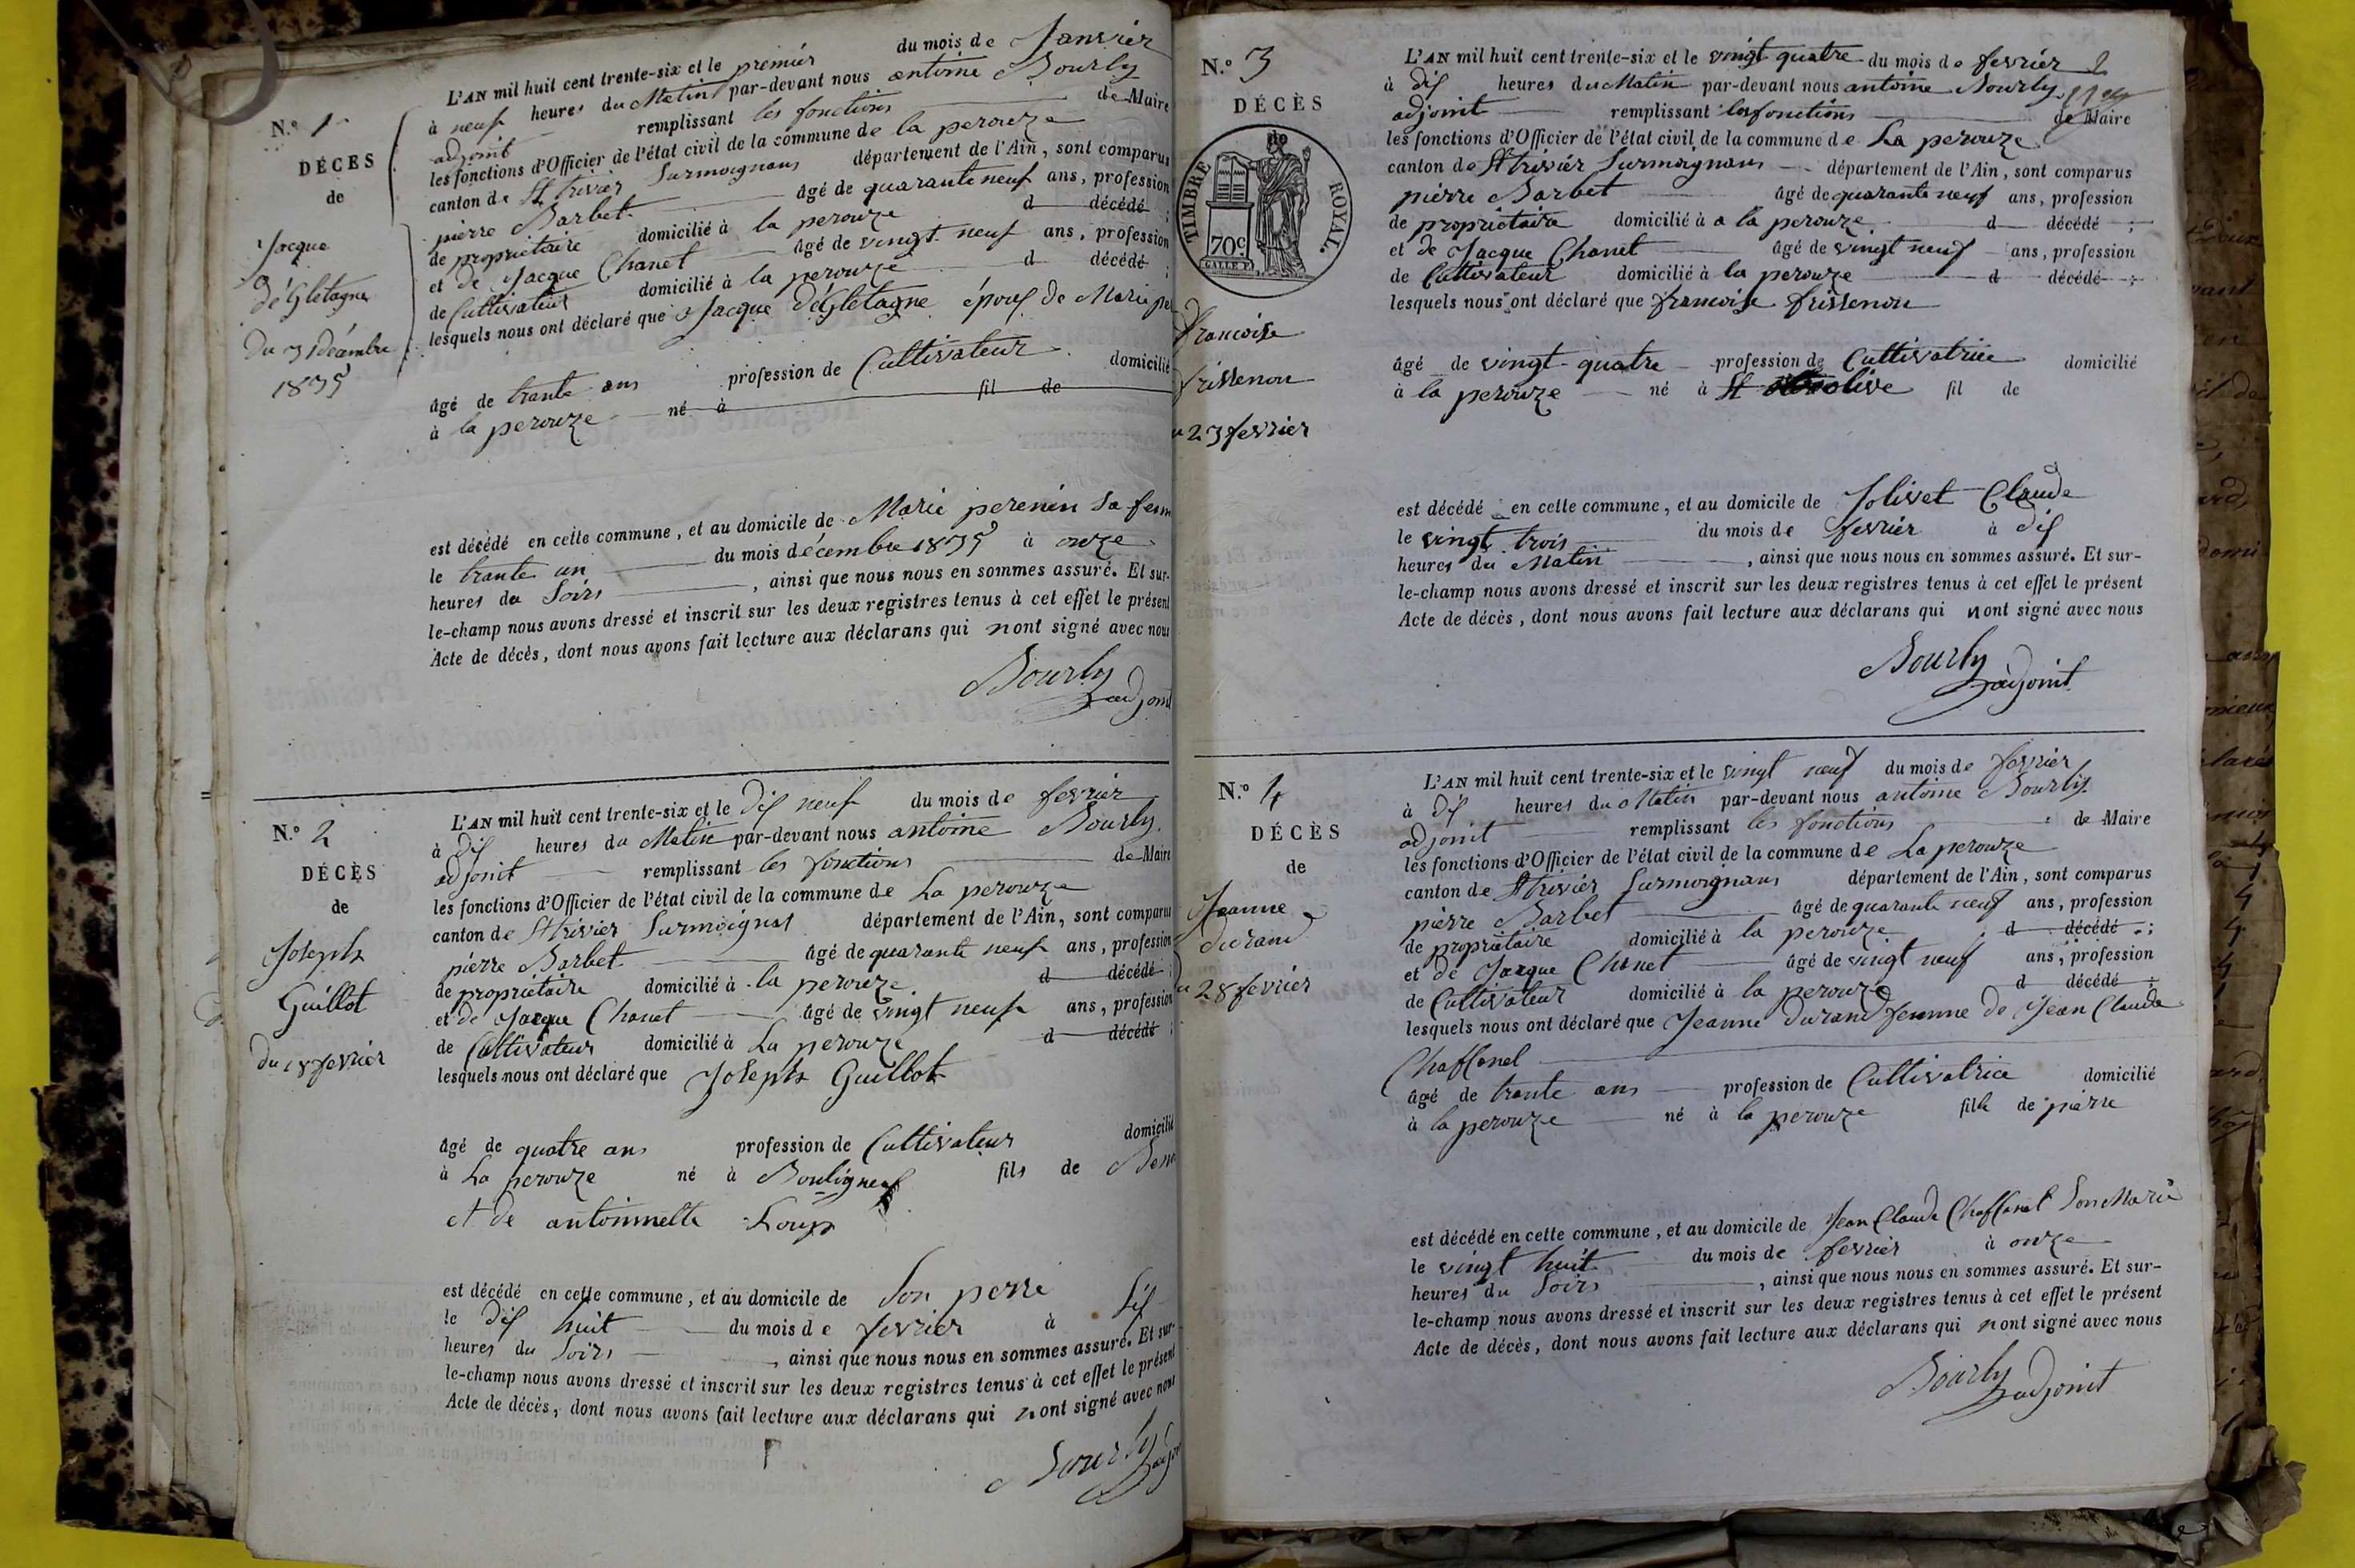 N.º 1
DÉCÈS
de
Jacque
déGletagne
Du 31 décembre
1835
L'AN mil huit cent trente-six et le premiér du mois de Janviér
à neuf heures du Matin par-devant nous antoine Bourly
adjoint remplissant les fonctions de Maire
les fonctions d'Officier de l'état civil de la commune de la perouze
canton de St triviér Surmoignans département de l'Ain, sont comparus
pierre Barbet âgé de quarante neuf ans, profession
de propriétaire domicilié à la perouze d décédé ;
et de Jacque Chanet âgé de vingt neuf ans, profession
de Cultivateur domicilié à la perouze d décédé ;
lesquels nous ont déclaré que Jacque déGletagne épous de Marie
âgé de trante ans profession de Cultivateur domicilié
à la perouze né à fil de
est décédé en cette commune, et au domicile de Marie perenin Sa fem
le trante un du mois décembre 1835 à onze
heures du Soirs , ainsi que nous nous en sommes assuré. Et sur-
le-champ nous avons dressé et inscrit sur les deux registres tenus à cet effet le présent
Acte de décès, dont nous avons fait lecture aux déclarans qui nont signé avec nous
Bourly
adjoint
N.º 2
DÉCÈS
de
Joseph
Guillot
du 18 fevriér
L'AN mil huit cent trente-six et le dis neuf du mois de fevriér
à dis heures du Matin par-devant nous antoine Bourly
adjoint remplissant les fonctions de Maire
les fonctions d'Officier de l'état civil de la commune de La perouze
canton de St triviér Surmoignas département de l'Ain, sont comparus
piérre Barbet âgé de quarante neuf ans, profession
de propriétaire domicilié à la perouze d décédé ;
et de Jacque Chanet âgé de vingt neuf ans, profession
de Cultivateur domicilié à La perouze d décédé ;
lesquels nous ont déclaré que Joseph Guillot
âgé de quatre ans profession de Cultivateur domicilié
à La perouze né à Bouligneux fils de Beno
et de antoinnette Loup
est décédé en cette commune, et au domicile de Son perre
le dis huit du mois de fevriér à Sis
heures du Soirs , ainsi que nous nous en sommes assuré. Et sur-
le-champ nous avons dressé et inscrit sur les deux registres tenus à cet effet le présent
Acte de décès, dont nous avons fait lecture aux déclarans qui nont signé avec nous
Bourly
N.º 3
DÉCÈS
de
TIMBRE ROYAL.
70c.
francoise
frissenon
23 fevriér
L'AN mil huit cent trente-six et le vingt quatre du mois de fevriér 2
à dis heures du Matin par-devant nous antoine Bourly
adjoint remplissant les fonctions de Maire
les fonctions d'Officier de l'état civil de la commune de La perouze
canton de St triviér Surmoignans département de l'Ain, sont comparus
piérre Barbet âgé de quarante neuf ans, profession
de propriétaire domicilié à a la perouze d décédé ;
et de Jacque Chanet âgé de vingt neuf ans, profession
de Cultivateur domicilié à la perouze d décédé ;
lesquels nous ont déclaré que francoise frissenon
âgé de vingt quatre profession de Cultivatrice domicilié
à la perouze né à St olive fil de
est décédé en cette commune, et au domicile de Jolivet Claude
le vingt trois du mois de fevriér à dis
heures du Matin , ainsi que nous nous en sommes assuré. Et sur-
le-champ nous avons dressé et inscrit sur les deux registres tenus à cet effet le présent
Acte de décès, dont nous avons fait lecture aux déclarans qui nont signé avec nous
Bourly
adjoint
N.º 4
DÉCÈS
de
Jeanne
durand
28 fevriér
L'AN mil huit cent trente-six et le vingt neuf du mois de fevriér
à dis heures du Matin par-devant nous antoine Bourly
adjoint remplissant les fonctions de Maire
les fonctions d'Officier de l'état civil de la commune de La perouze
canton de St triviér Surmoignans département de l'Ain, sont comparus
piérre Barbet âgé de quarante neuf ans, profession
de propriétaire domicilié à la perouze d décédé ;
et de Jacque Chanet âgé de vingt neuf ans, profession
de Cultivateur domicilié à la perouze d décédé ;
lesquels nous ont déclaré que Jeanne durand femme de Jean Claude
Chaffanel
âgé de trante ans profession de Cultivatrice domicilié
à la perouze né à la perouze fille de piérre
est décédé en cette commune, et au domicile de Jean Claude Chaffanel Son Marie
le vingt huit du mois de fevriér à onze
heures du Soirs , ainsi que nous nous en sommes assuré. Et sur-
le-champ nous avons dressé et inscrit sur les deux registres tenus à cet effet le présent
Acte de décès, dont nous avons fait lecture aux déclarans qui nont signé avec nous
Bourly
adjoint